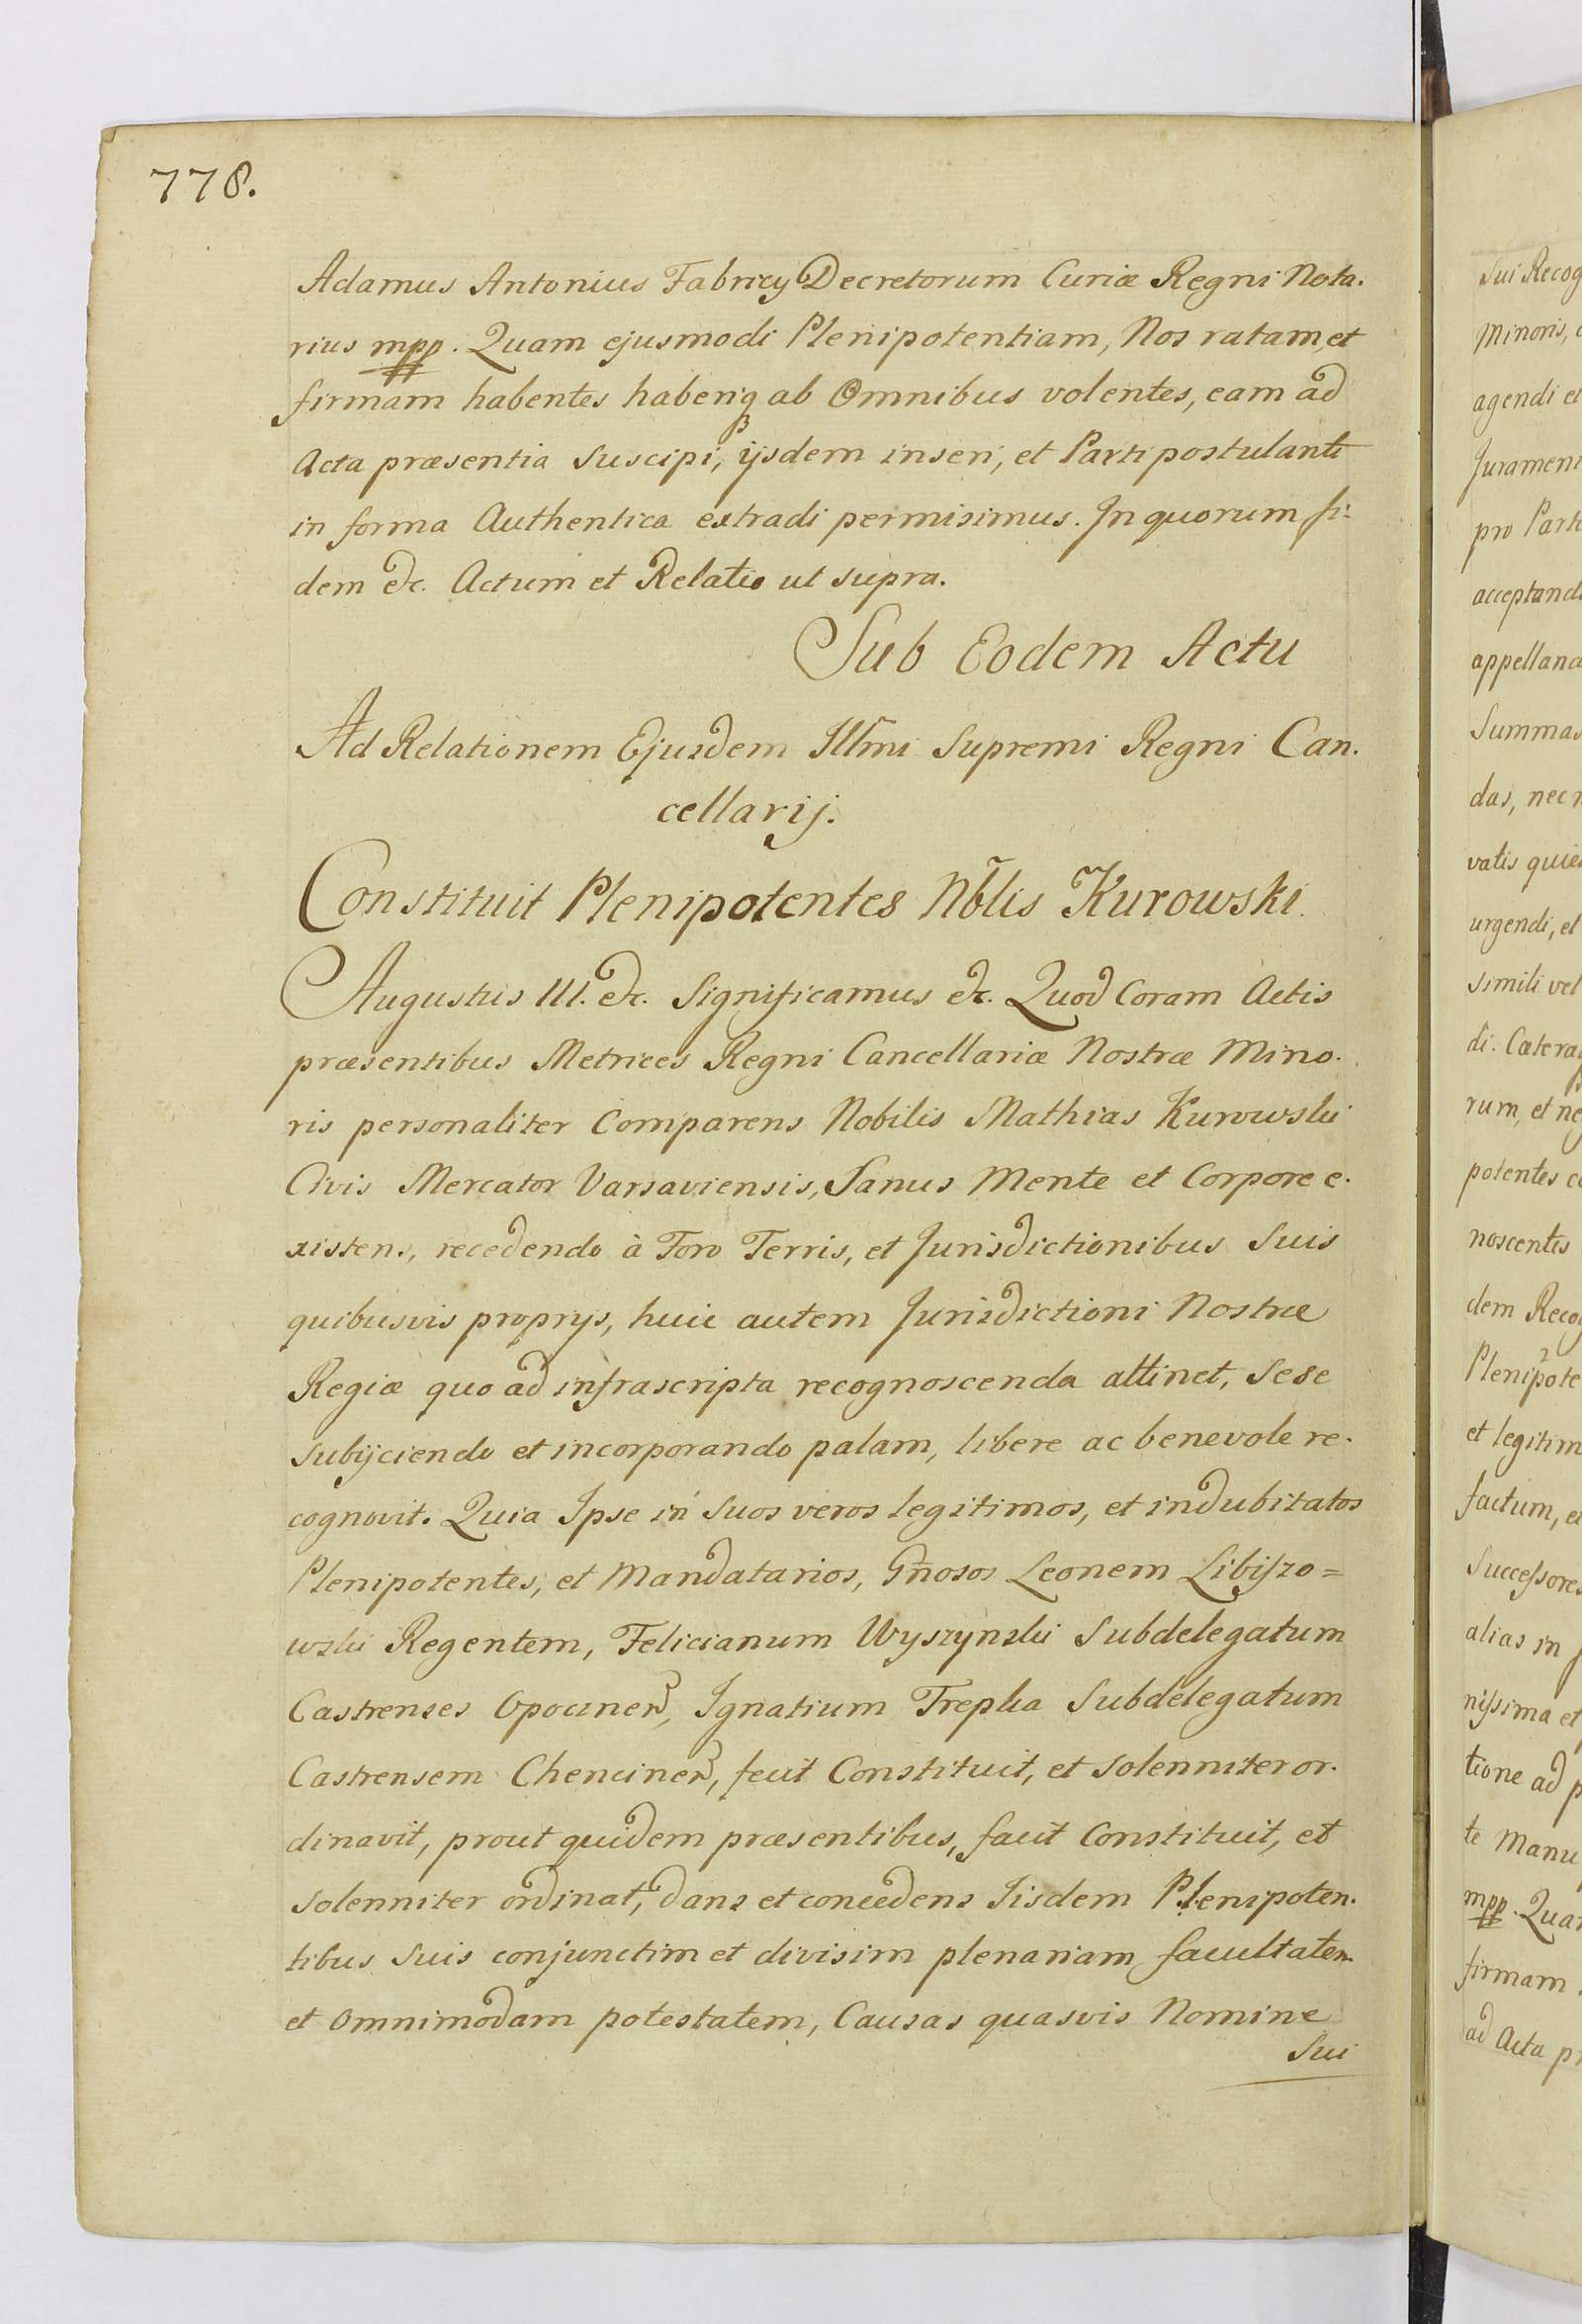 778.
Adamus Antonius Fabricy Decretorum Curiæ Regni Nota.
rius mpp. Quam ejusmodi Plenipotentiam, Nos ratam, et
firmam habentes haberiqȝ ab Omnibus volentes, eam ad
Acta præsentia suscipi, ijsdem inseri, et Parti postulanti
in forma Authentica extradi permisimus. In quorum fi-
dem etc. Actum et Relatio ut supra.
Sub Eodem Actu
Ad Relationem Ejusdem Illm̃i Supremi Regni Can.
cellarij.
Constituit Plenipotentes Nb̃lis Kurowski.
Augustus III. etc. Significamus etc. Quod Coram Actis
præsentibus Metrices Regni Cancellariæ Nostræ Mino.
ris personaliter Comparens Nobilis Mathias Kurowski
Civis Mercator Varsaviensis, Sanus Mente et Corpore e.
xistens, recedendo à Foro Terris, et Jurisdictionibus Suis
quibusvis proprys, huic autem Jurisdictioni Nostræ
Regiæ quo ad infrascripta recognoscenda attinet, sese
subijciendo et incorporando palam, libere ac benevole re.
cognovit. Quia Ipse in Suos veros legitimos, et indubitatos
Plenipotentes, et Mandatarios, Gñosos Leonem Libiszo=
wski Regentem, Felicianum Wyszynski Subdelegatum
Castrenses Opocinen, Ignatium Trepka Subdelegatum
Castrensem Chencinen, fecit Constituit, et solenniter or.
dinavit, prout quidem præsentibus, facit Constituit, et
solenniter ordinat, dans et concedens Iisdem Plenipoten.
tibus Suis conjunctim et divisim plenariam facultatem
et omnimodam potestatem, Causas quasvis Nomine
Sui
Sui Recog
Minoris,
agendi et
Jurament
pro Parte
acceptand
appelland
Summas
das, nec n
vatis quie
urgendi, et
simili vel
di. Cæteraq
rum, et ne
potentes c
noscentis
dem Recog
Plenipote
et legitim
factum, e
Successores
alias in
nissima et
tione ad p
te Manu
mpp. Quam
firmam
ad Acta pr